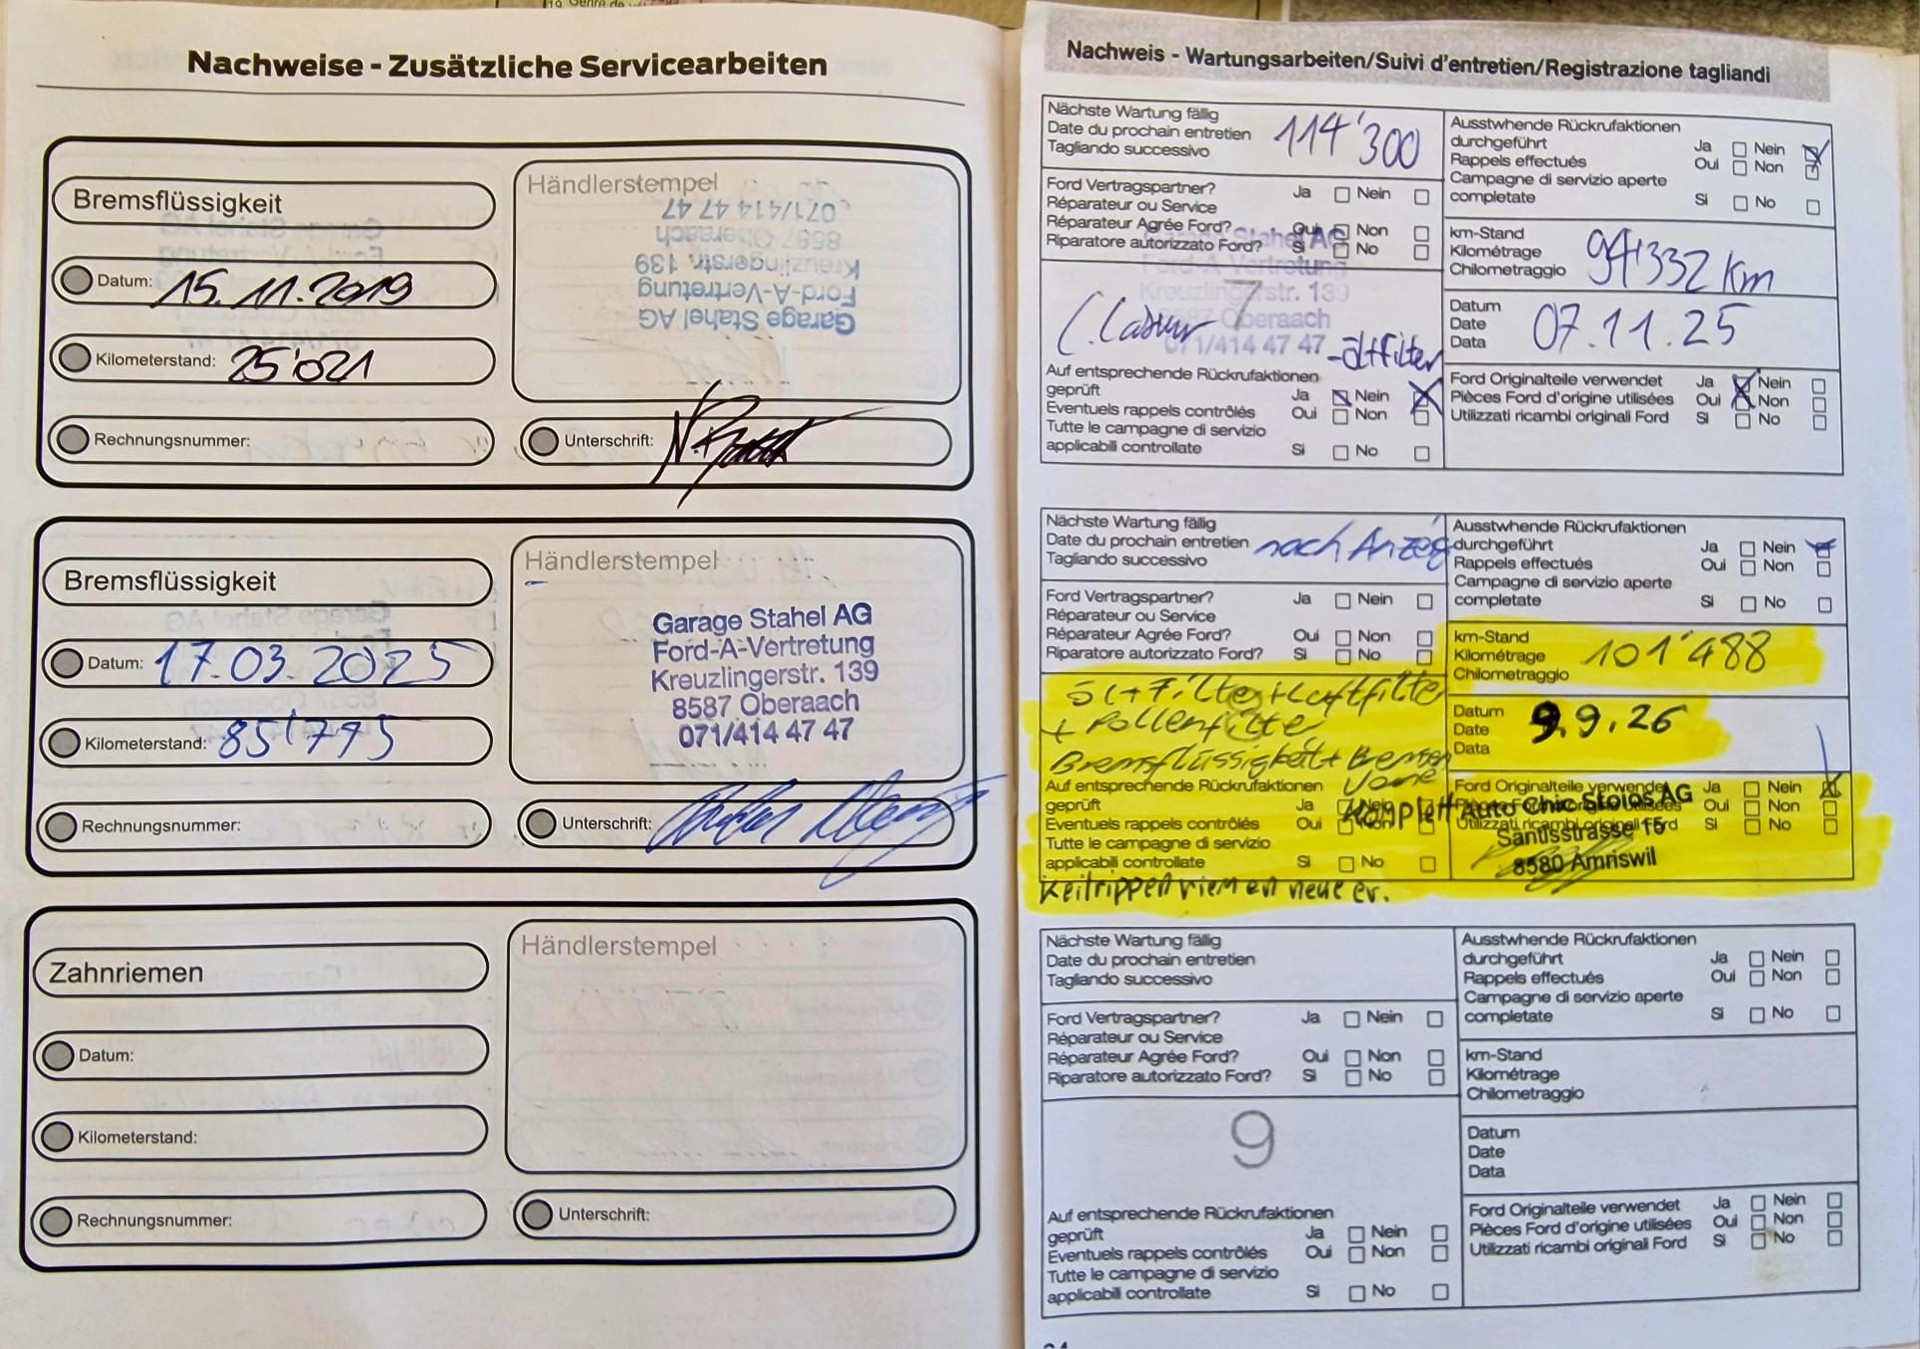 Nachweise - Zusätzliche Servicearbeiten
Bremsflüssigkeit
Datum: 15.11.2019
Kilometerstand: 25'021
Rechnungsnummer:
Händlerstempel
Garage Stahel AG
Ford-A-Vertretung
Kreuzlingerstr. 139
8587 Oberaach
071/414 47 47
Unterschrift:
Bremsflüssigkeit
Datum: 17.03.2025
Kilometerstand: 85'775
Rechnungsnummer:
Händlerstempel
Garage Stahel AG
Ford-A-Vertretung
Kreuzlingerstr. 139
8587 Oberaach
071/414 47 47
Unterschrift:
Zahnriemen
Datum:
Kilometerstand:
Rechnungsnummer:
Händlerstempel
Unterschrift:
Nachweis - Wartungsarbeiten/Suivi d'entretien/Registrazione tagliandi
Nächste Wartung fällig
Date du prochain entretien 114'300
Tagliando successivo
Ford Vertragspartner? Ja Nein
Réparateur ou Service
Réparateur Agrée Ford? Oui Non
Riparatore autorizzato Ford? Si No
Garage Stahel AG
Ford-A-Vertretung
Kreuzlingerstr. 139
8587 Oberaach
071/414 47 47
7
-ölfilter
Auf entsprechende Rückrufaktionen
geprüft Ja Nein
Eventuels rappels contrôlés Oui Non
Tutte le campagne di servizio
applicabili controllate Si No
Ausstwhende Rückrufaktionen
durchgeführt Ja Nein
Rappels effectués Oui Non
Campagne di servizio aperte
completate Si No
km-Stand
Kilométrage 94'332 Km
Chilometraggio
Datum
Date 07.11.25
Data
Ford Originalteile verwendet Ja Nein
Pièces Ford d'origine utilisées Oui Non
Utilizzati ricambi originali Ford Si No
Nächste Wartung fällig
Date du prochain entretien nach Anzeig
Tagliando successivo
Ford Vertragspartner? Ja Nein
Réparateur ou Service
Réparateur Agrée Ford? Oui Non
Riparatore autorizzato Ford? Si No
Öl + Filter + Luftfilter
+ Pollenfilte
Bremsflüssigkeit + Bremsen
Vorne
Komplett
Auf entsprechende Rückrufaktionen
geprüft Ja Nein
Eventuels rappels contrôlés Oui Non
Tutte le campagne di servizio
applicabili controllate Si No
Keilrippenriemen neue er.
Ausstwhende Rückrufaktionen
durchgeführt Ja Nein
Rappels effectués Oui Non
Campagne di servizio aperte
completate Si No
km-Stand
Kilométrage 101'488
Chilometraggio
Datum
Date 9.9.26
Data
Ford Originalteile verwendet Ja Nein
Pièces Ford d'origine utilisées Oui Non
Utilizzati ricambi originali Ford Si No
Auto Chic Stoios AG
Säntisstrasse 15
8580 Amriswil
Nächste Wartung fällig
Date du prochain entretien
Tagliando successivo
Ford Vertragspartner? Ja Nein
Réparateur ou Service
Réparateur Agrée Ford? Oui Non
Riparatore autorizzato Ford? Si No
9
Auf entsprechende Rückrufaktionen
geprüft Ja Nein
Eventuels rappels contrôlés Oui Non
Tutte le campagne di servizio
applicabili controllate Si No
Ausstwhende Rückrufaktionen
durchgeführt Ja Nein
Rappels effectués Oui Non
Campagne di servizio aperte
completate Si No
km-Stand
Kilométrage
Chilometraggio
Datum
Date
Data
Ford Originalteile verwendet Ja Nein
Pièces Ford d'origine utilisées Oui Non
Utilizzati ricambi originali Ford Si No